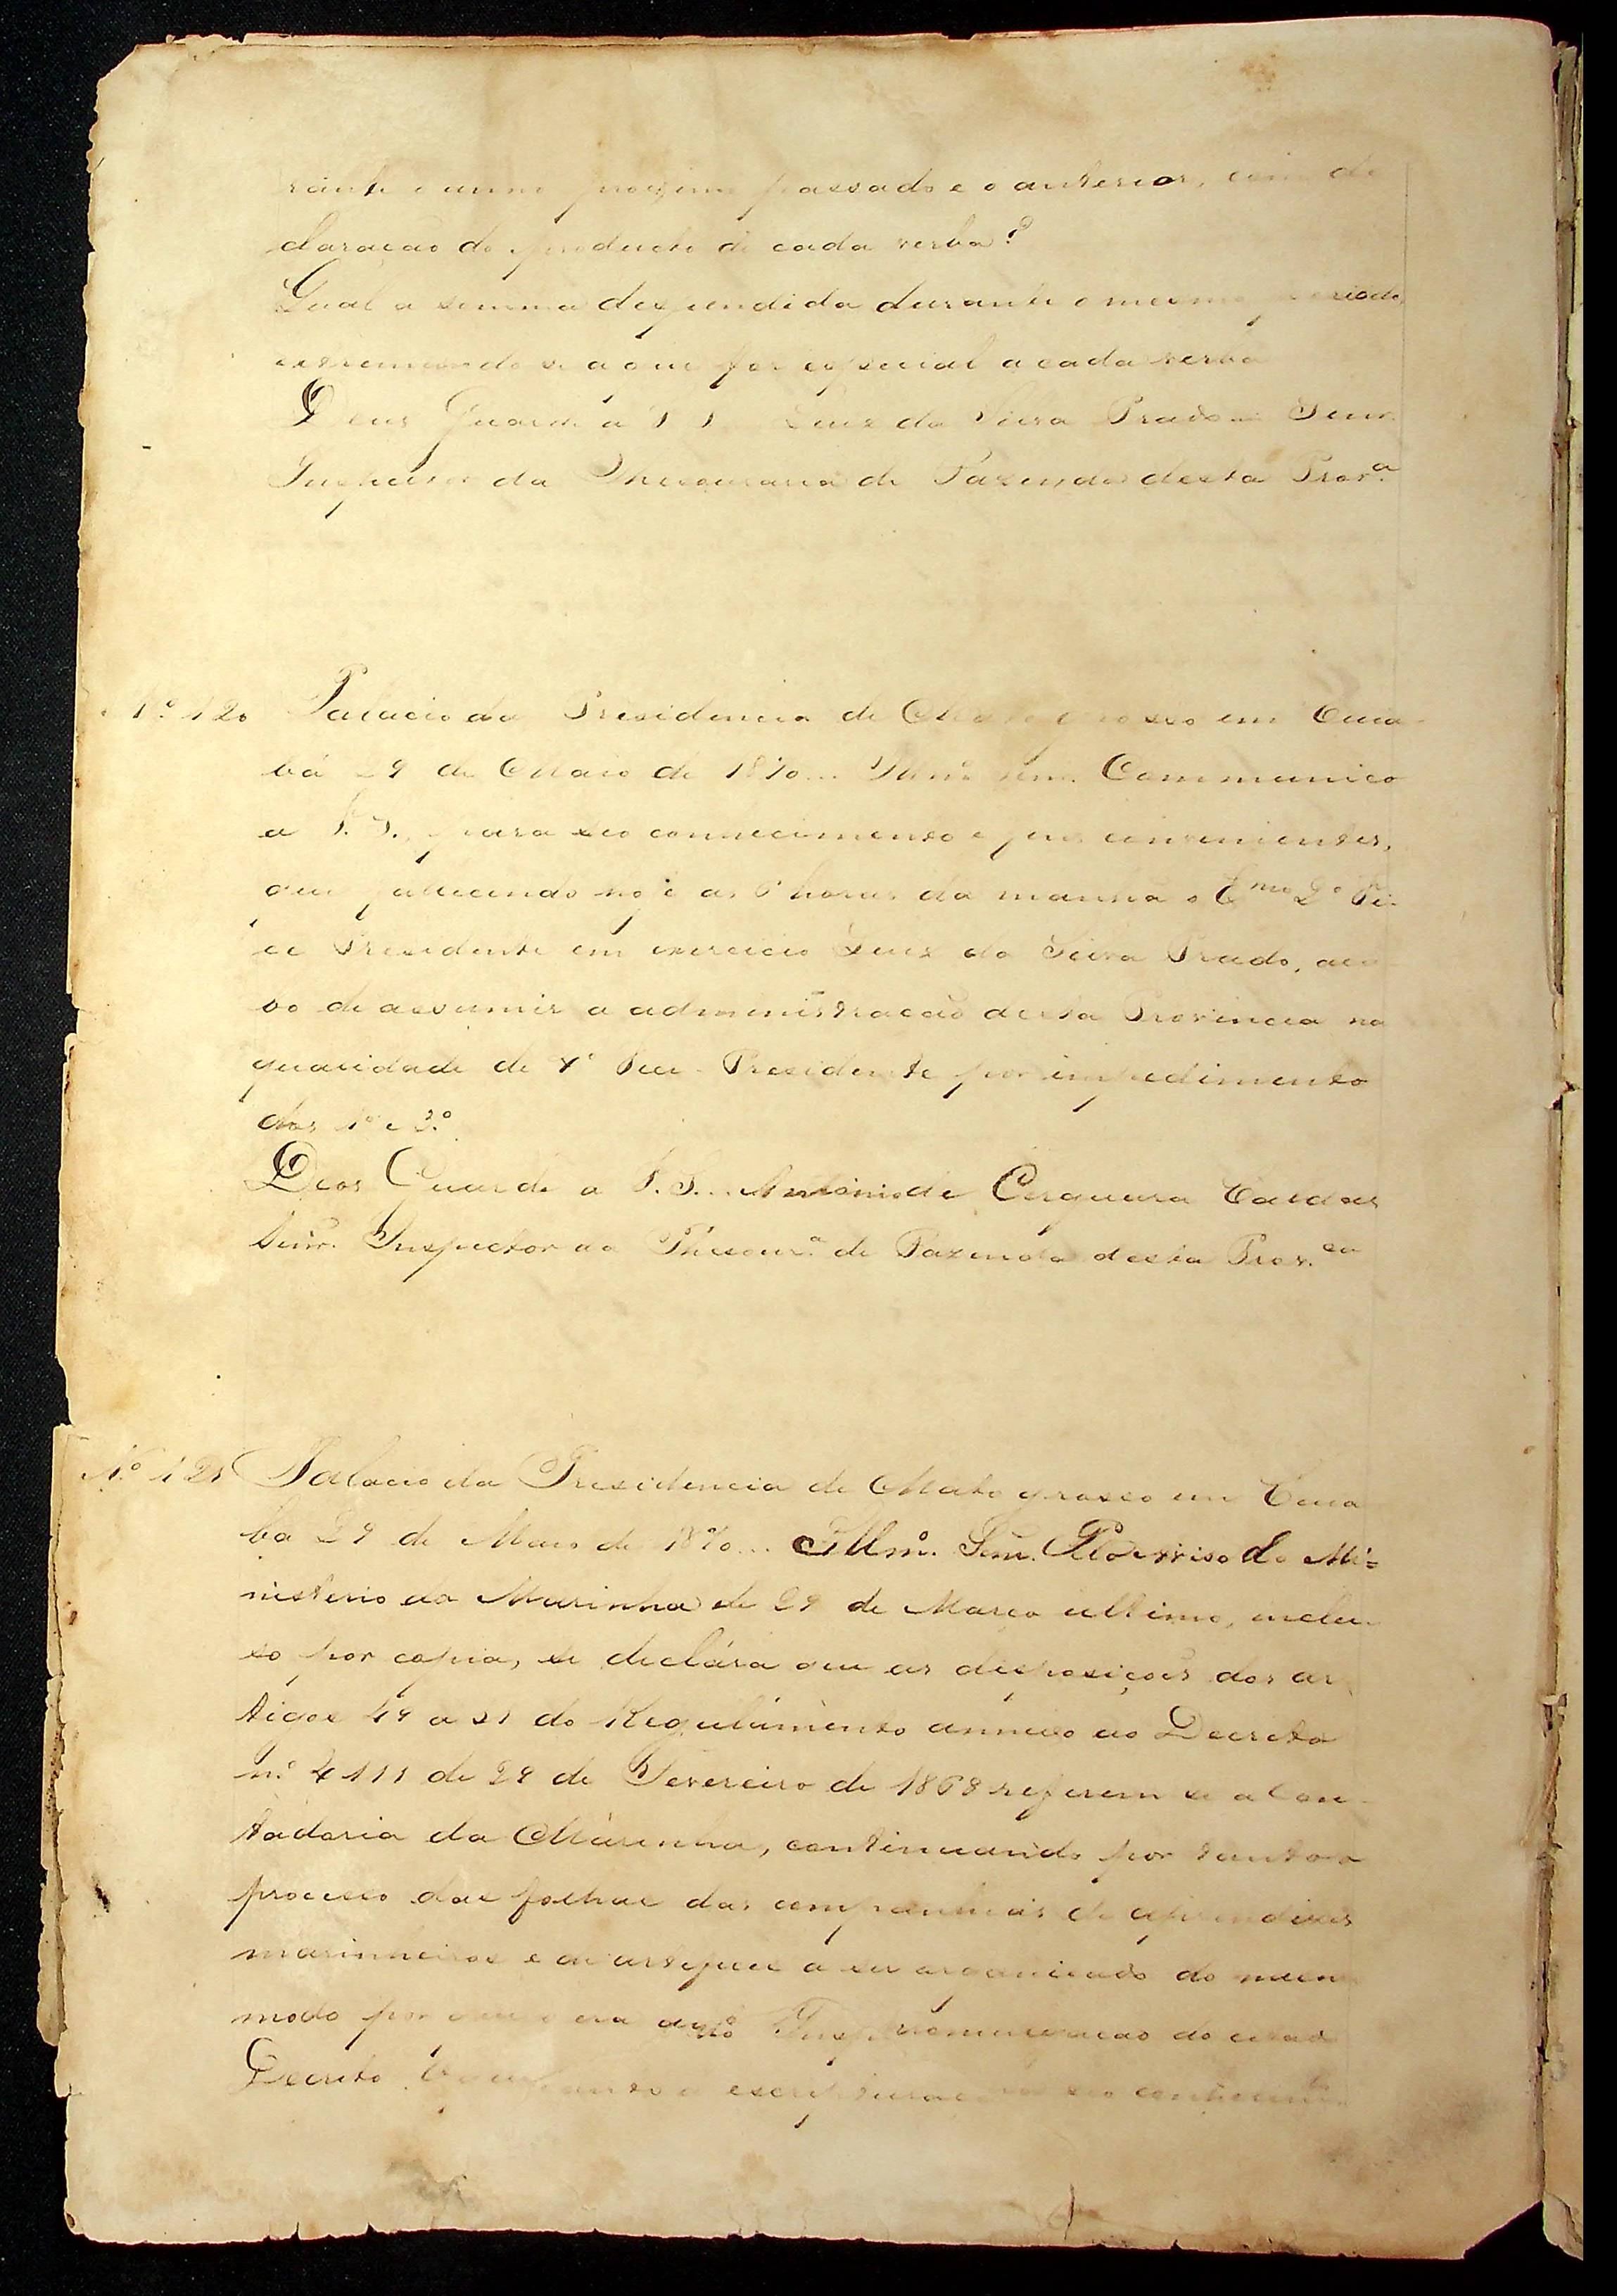 rante o anno proximo passado e o anterior, com de
claração do producto de cada verba?
Qual a somma despendida durante o mesmo periodo,
extremando se a que for especial a cada verba
Deus Guarde a V S Luis da Silva Prado Senr.
Inspector da Thesouraria de Fazenda desta Prov.ª
Nº 120 Palacio da Presidencia de Mato grosso em Cuia
bá 29 de Maio de 1870... Illmº Senr. Communico
a V. S., para seo conhecimento e fins convenientes,
que fallecendo hoje as 6 horas da manhã o Exmo 2º Vi-
ce Presidente em exercicio Luis da Silva Prado, aca
bo de assumir a administração desta Provincia na
qualidade de 4º Vice-Presidente por impedimento
dos 1º e 3º.
Deos Guarde a V. S... Antonio de Cerqueira Caldas
Senr. Inspector da Thesourª de Fazenda desta Prov.cia
Nº 121 Palacio da Presidencia de Mato grosso em Cuia
ba 29 de Maio de 1870... Illmº. Senr. Pelo aviso do Mi=
nisterio da Marinha de 29 de Março ultimo, inclu
so por copia, se declára que as disposições dos ar
tigos 49 a 51 do Regulamento annexo ao Decreto
nº 4111 de 29 de Fevereiro de 1868 referem se a Con-
tadoria da Marinha, continuando por tanto o
processo das folhas das companhias de aprendizes
marinheiros e de artifices a ser organisado do mesmo
modo por que o era do citado
Decreto escripturação seo